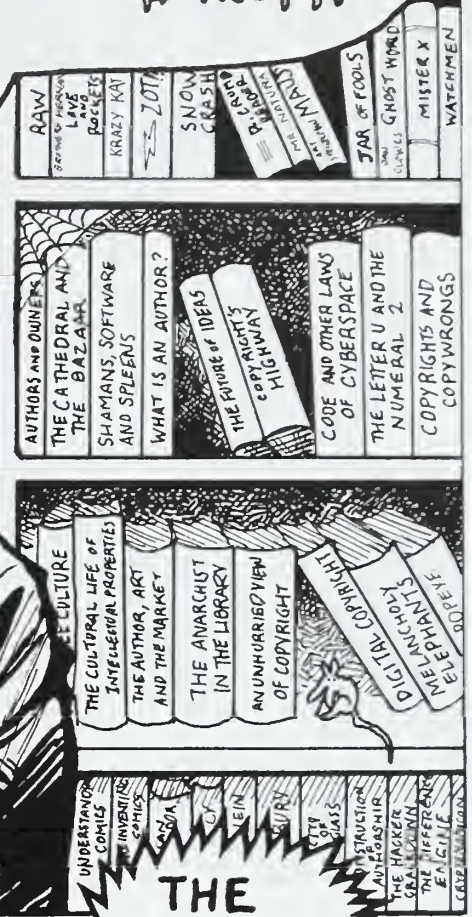 RAW
LOVE
AND
ROCKETS
KRAZY KAT
ZOT!
SNOW
CRASH
R. CRUMB
MR. NATURAL
ART
MAUS
JAR OF FOOLS
DAN
CLOWES
GHOST WORLD
MISTER X
WATCHMEN
AUTHORS AND OWNERS
THE CATHEDRAL AND
THE BAZAAR
SHAMANS, SOFTWARE
AND SPLEENS
WHAT IS AN AUTHOR?
THE FUTURE OF IDEAS
COPYRIGHT'S
HIGHWAY
CODE AND OTHER LAWS
OF CYBERSPACE
THE LETTER U AND THE
NUMERAL 2
COPYRIGHTS AND
COPYWRONGS
CULTURE
THE CULTURAL LIFE OF
INTELLECTUAL PROPERTIES
THE AUTHOR, ART
AND THE MARKET
THE ANARCHIST
IN THE LIBRARY
AN UNHURRIED VIEW
OF COPYRIGHT
DIGITAL COPYRIGHT
MELANCHOLY
ELEPHANTS
POPEYE
UNDERSTAND
COMICS
INVENTING
COMICS
EIN
CITY
OF
GLASS
AUTHORSHIP
THE HACKER
CRACKDOWN
THE DIFFERENCE
ENGINE
THE